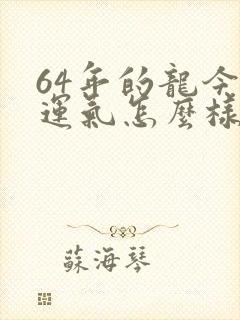 64年的龍今
運氣怎麼樣
蘇海琴